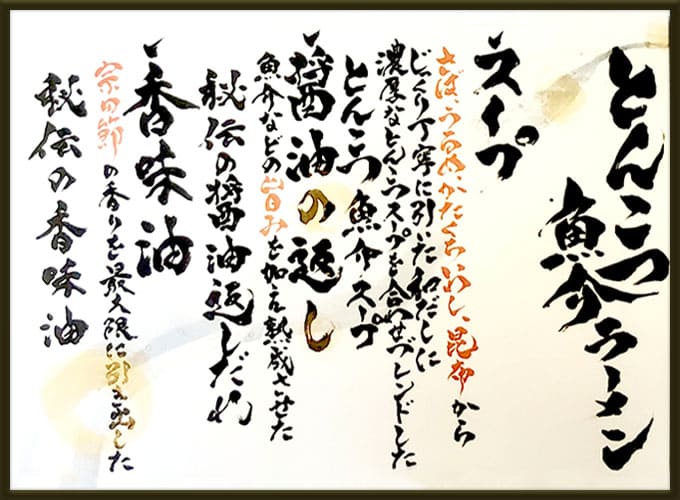 とんこつ
魚介ラーメン
、スープ
さば、うるめ、かたくちいわし、昆布から
じっくり丁寧に引いた和だしに
濃厚なとんこつスープを合わせブレンドした
とんこつ魚介スープ
、醤油の返し
魚介などの旨みを加え熟成させた
秘伝の醤油返しだれ
、香味油
宗田節の香りを最大限に引き出した
秘伝の香味油